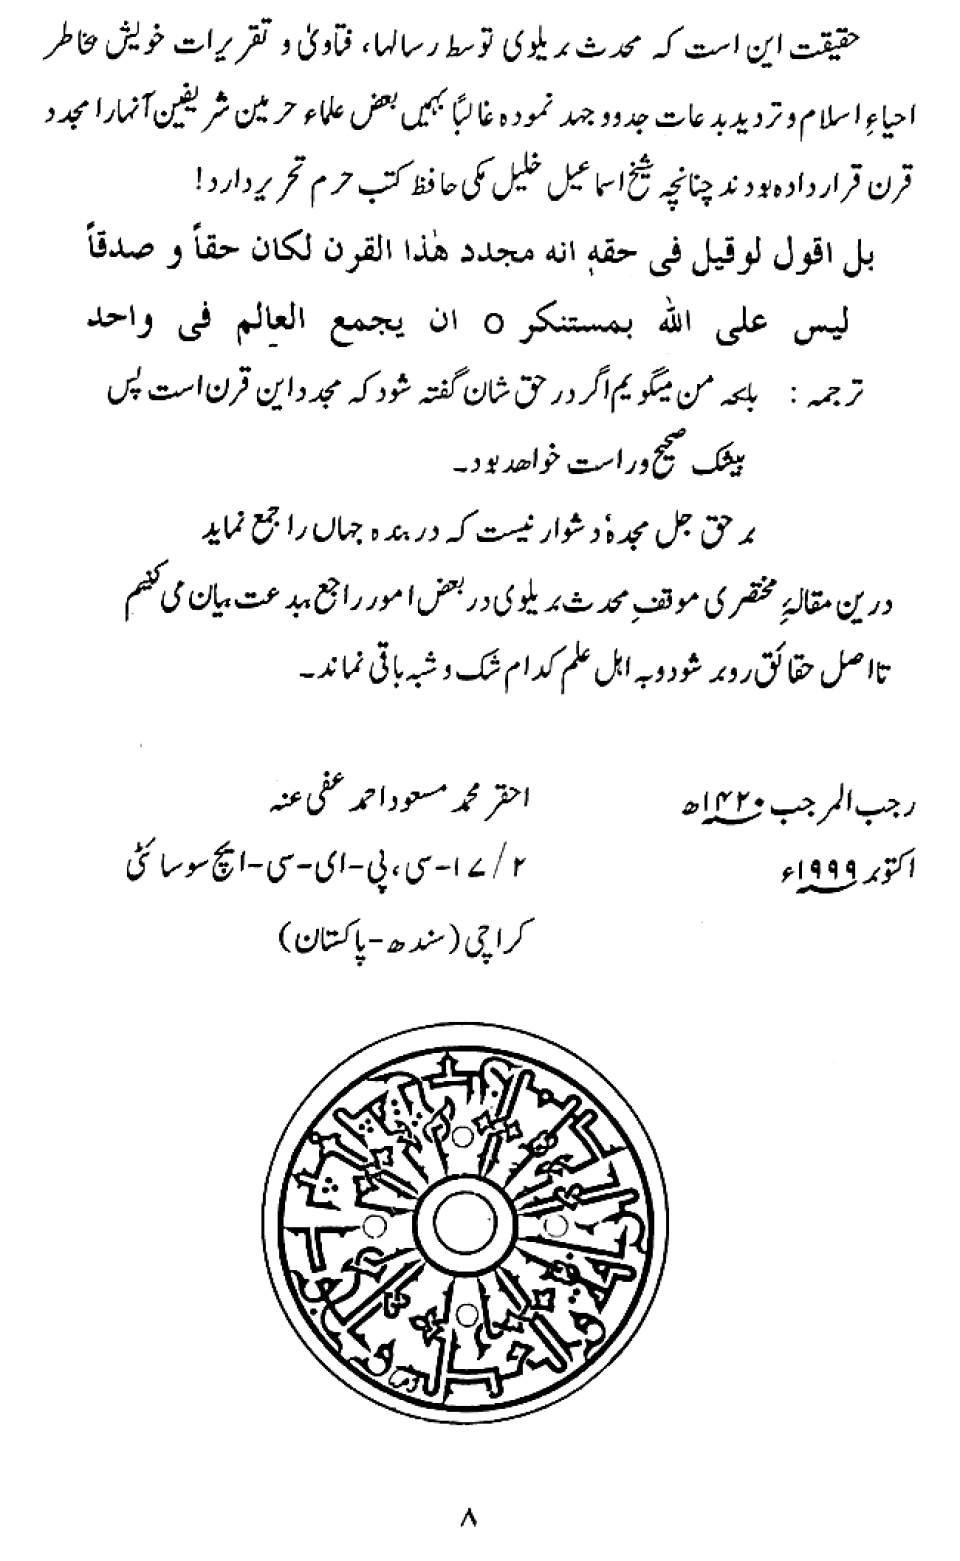 حقیقت این است که محدث بریلوی توسط رسالها، فتاویٰ و تقریرات خویش بخاطر
احیاءِ اسلام و تردید بدعات جدوجهد نموده غالباً بہمیں بعض علماء حرمین شریفین آنهارا مجدد
قرن قرار داده بودند چنانچه شیخ اسماعیل خلیل مکی حافظ کتب حرم تحریر دارد!
بل اقول لوقیل فی حقہٖ انه مجدد هٰذا القرن لکان حقاً و صدقاً
لیس علی الله بمستنکر ○ ان یجمع العالم فی واحد
ترجمہ : بلکه من میگویم اگر در حق شان گفته شود که مجدد این قرن است پس
بیشک صحیح و راست خواهد بود۔
بر حق جل مجدہٗ دشوار نیست که در بنده جهاں را جمع نماید
درین مقالۂ مختصری موقفِ محدث بریلوی در بعض امور راجع ببدعت بیان می کنیم
تا اصل حقائق روبر شود وبه اهل علم کدام شک و شبه باقی نماند۔
رجب المرجب ۱۴۲۰ھ
اکتوبر ۱۹۹۹ء
احقر محمد مسعود احمد عفی عنه
۱۷/۲-سی، پی-ای-سی-ایچ سوسائٹی
کراچی (سندھ-پاکستان)
۸